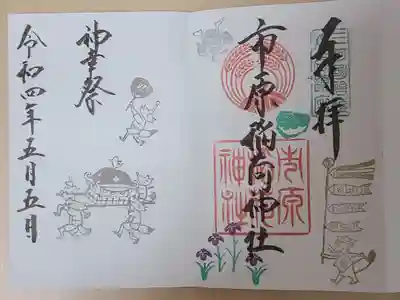 奉拝
市原稲荷神社
市原
稲荷
神社
神幸祭
令和四年五月五日